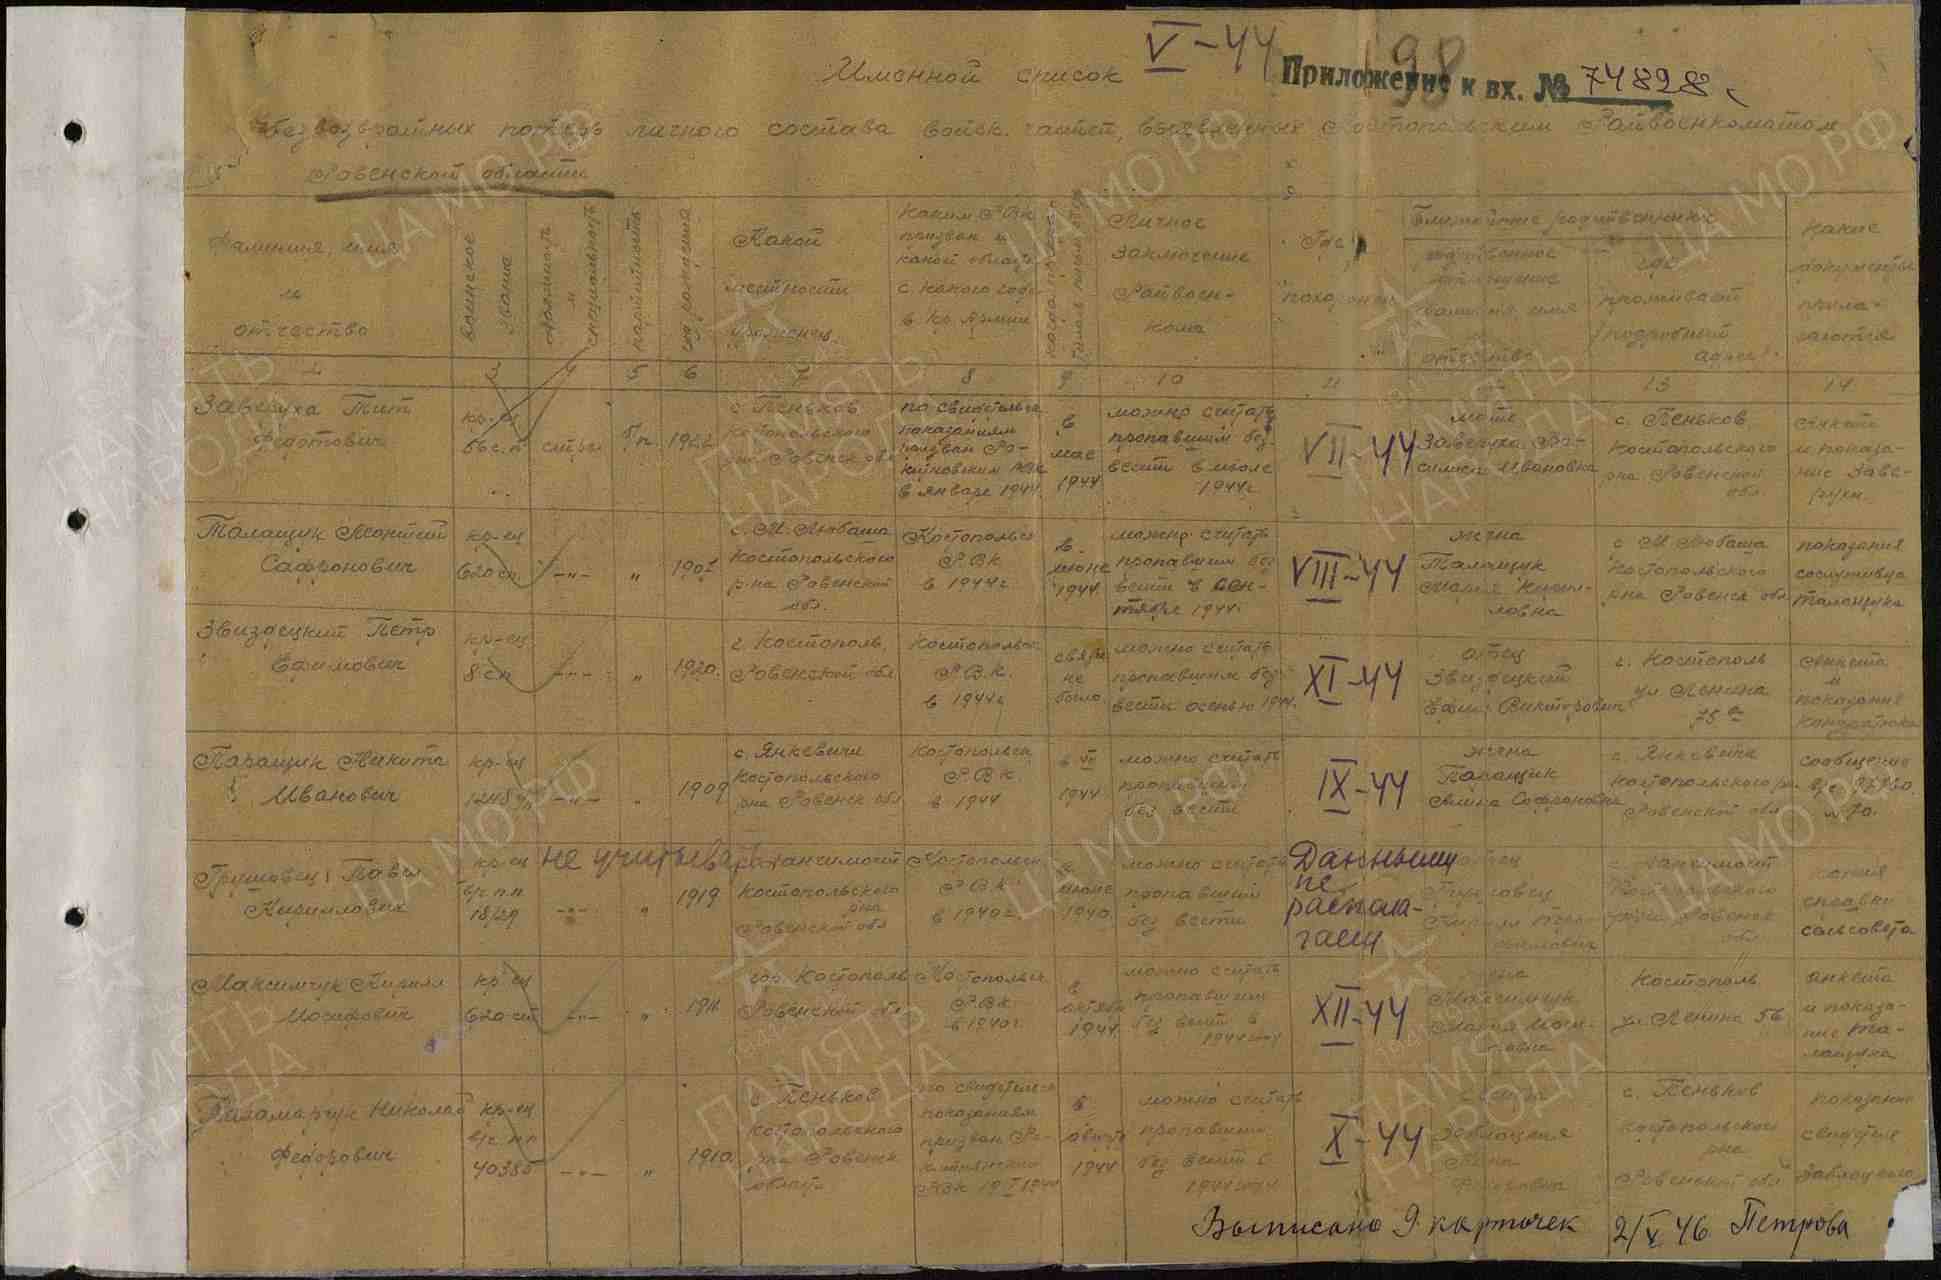 V-44
198
Именной список
Приложение к вх. № 74828с
безвозвратных потерь личного состава войск. частей, выявленных Костопольским Райвоенкоматом
Ровенской области
Фамилия, имя
и
отчество
Воинское
звание
должность
и
специальность
партийность
год рождения
Какой
местности
уроженец
Каким РВК
призван и
какой области
с какого года
в Кр. Армии
Личное
заключение
Райвоен-
кома
Где
похоронен
Ближайшие родственники
родственное
отношение
фамилия имя
отчество
где
проживает
(подробный
адрес)
Какие
документы
прила-
гаются
3
4
5
6
7
8
9
10
11
13
14
Заверуха Тит
Федотович
кр-ец
56 с.п
стрел
б/п
1922
с Пеньков
Костопольского
рна Ровенск обл
по свидетельск
показаниям
призван Ро-
китновским РВК
в январе 1944
в
мае
1944
можно считать
пропавшим без
вести в июле
1944г
VII-44
мать
Заверуха Ва-
силиса Ивановна
с. Пеньков
Костопольского
рна Ровенской
обл.
анкета
и показа-
ние Заве-
рухи
Талащук Леонтий
Сафронович
кр-ец
620 сп
-"-
"
1901
с. М. Любаша
Костопольского
р-на Ровенской
обл.
Костопольск
РВК
в 1944г
в
июне
1944
можно считать
пропавшим без
вести в сен-
тябре 1944.
VIII-44
жена
Талащук
Мария Кирил-
ловна
с М Любаша
Костопольского
рна Ровенск обл
показания
сослуживца
Талащука
Звиздецкий Петр
Ефимович
кр-ец
8 сп
-"-
"
1920.
г. Костополь,
Ровенской обл
Костопольск
Р.В.К.
в 1944г
связи
не
было
можно считать
пропавшим без
вести осенью 1944.
XI-44
отец
Звиздецкий
Ефим Викторович
г. Костополь
ул Ленина
75а
анкета
и
показание
Кондратюка
Паращук Никита
Иванович
кр-ец
1248
-"-
"
1909
с. Янкевичи
Костопольского
рна Ровенск обл
Костопольск
Р.В.К.
в 1944
в VII
1944
можно считать
пропавшим
без вести
IX-44
жена
Паращук
Софроновна
с. Янкевичи
Костопольского р-
Ровенской обл
сообщение
в/ч
Грушовец Павел
Кириллович
кр-ец
в/ч пп
18/29
не учитывать
-"-
"
1919
Костопольского
рна
Ровенской обл
Костопольск
РВК
в 1940г.
в
июне
1940
можно считать
пропавшим
без вести
Данными
не
распола-
гаем
отец
Грушовец
Кирилл
Костопольского
рна Ровенск
обл
копия
справки
сельсовета
Максимчук Кирилл
Иосифович
кр-ец
620 сп
-"-
"
1911
гор. Костополь
Ровенской обл
Костопольск
РВК
в 1940г.
в
октяб
1944
можно считать
пропавшим
без вести в
1944 году
XII-44
Максимчук
Мария
Костополь
ул. Ленина 56
анкета
и показа-
ние Та-
лащука
Паламарчук Николай
Федорович
кр-ец
в/ч пп
40385
-"-
"
1910.
с Пеньков
Костопольского
рна Ровенск
область
по свидетельск
показаниям
призван Ро-
китновским
РВК
в
августе
1944
можно считать
пропавшим
без вести в
1944 году
X-44
Заблоцкая
с. Пеньков
Костопольского
рна
Ровенской обл
показание
свидетеля
Заблоцкого
Выписано 9 карточек 2/V 46 Петрова
ЦАМО.РФ
ПАМЯТЬ
НАРОДА